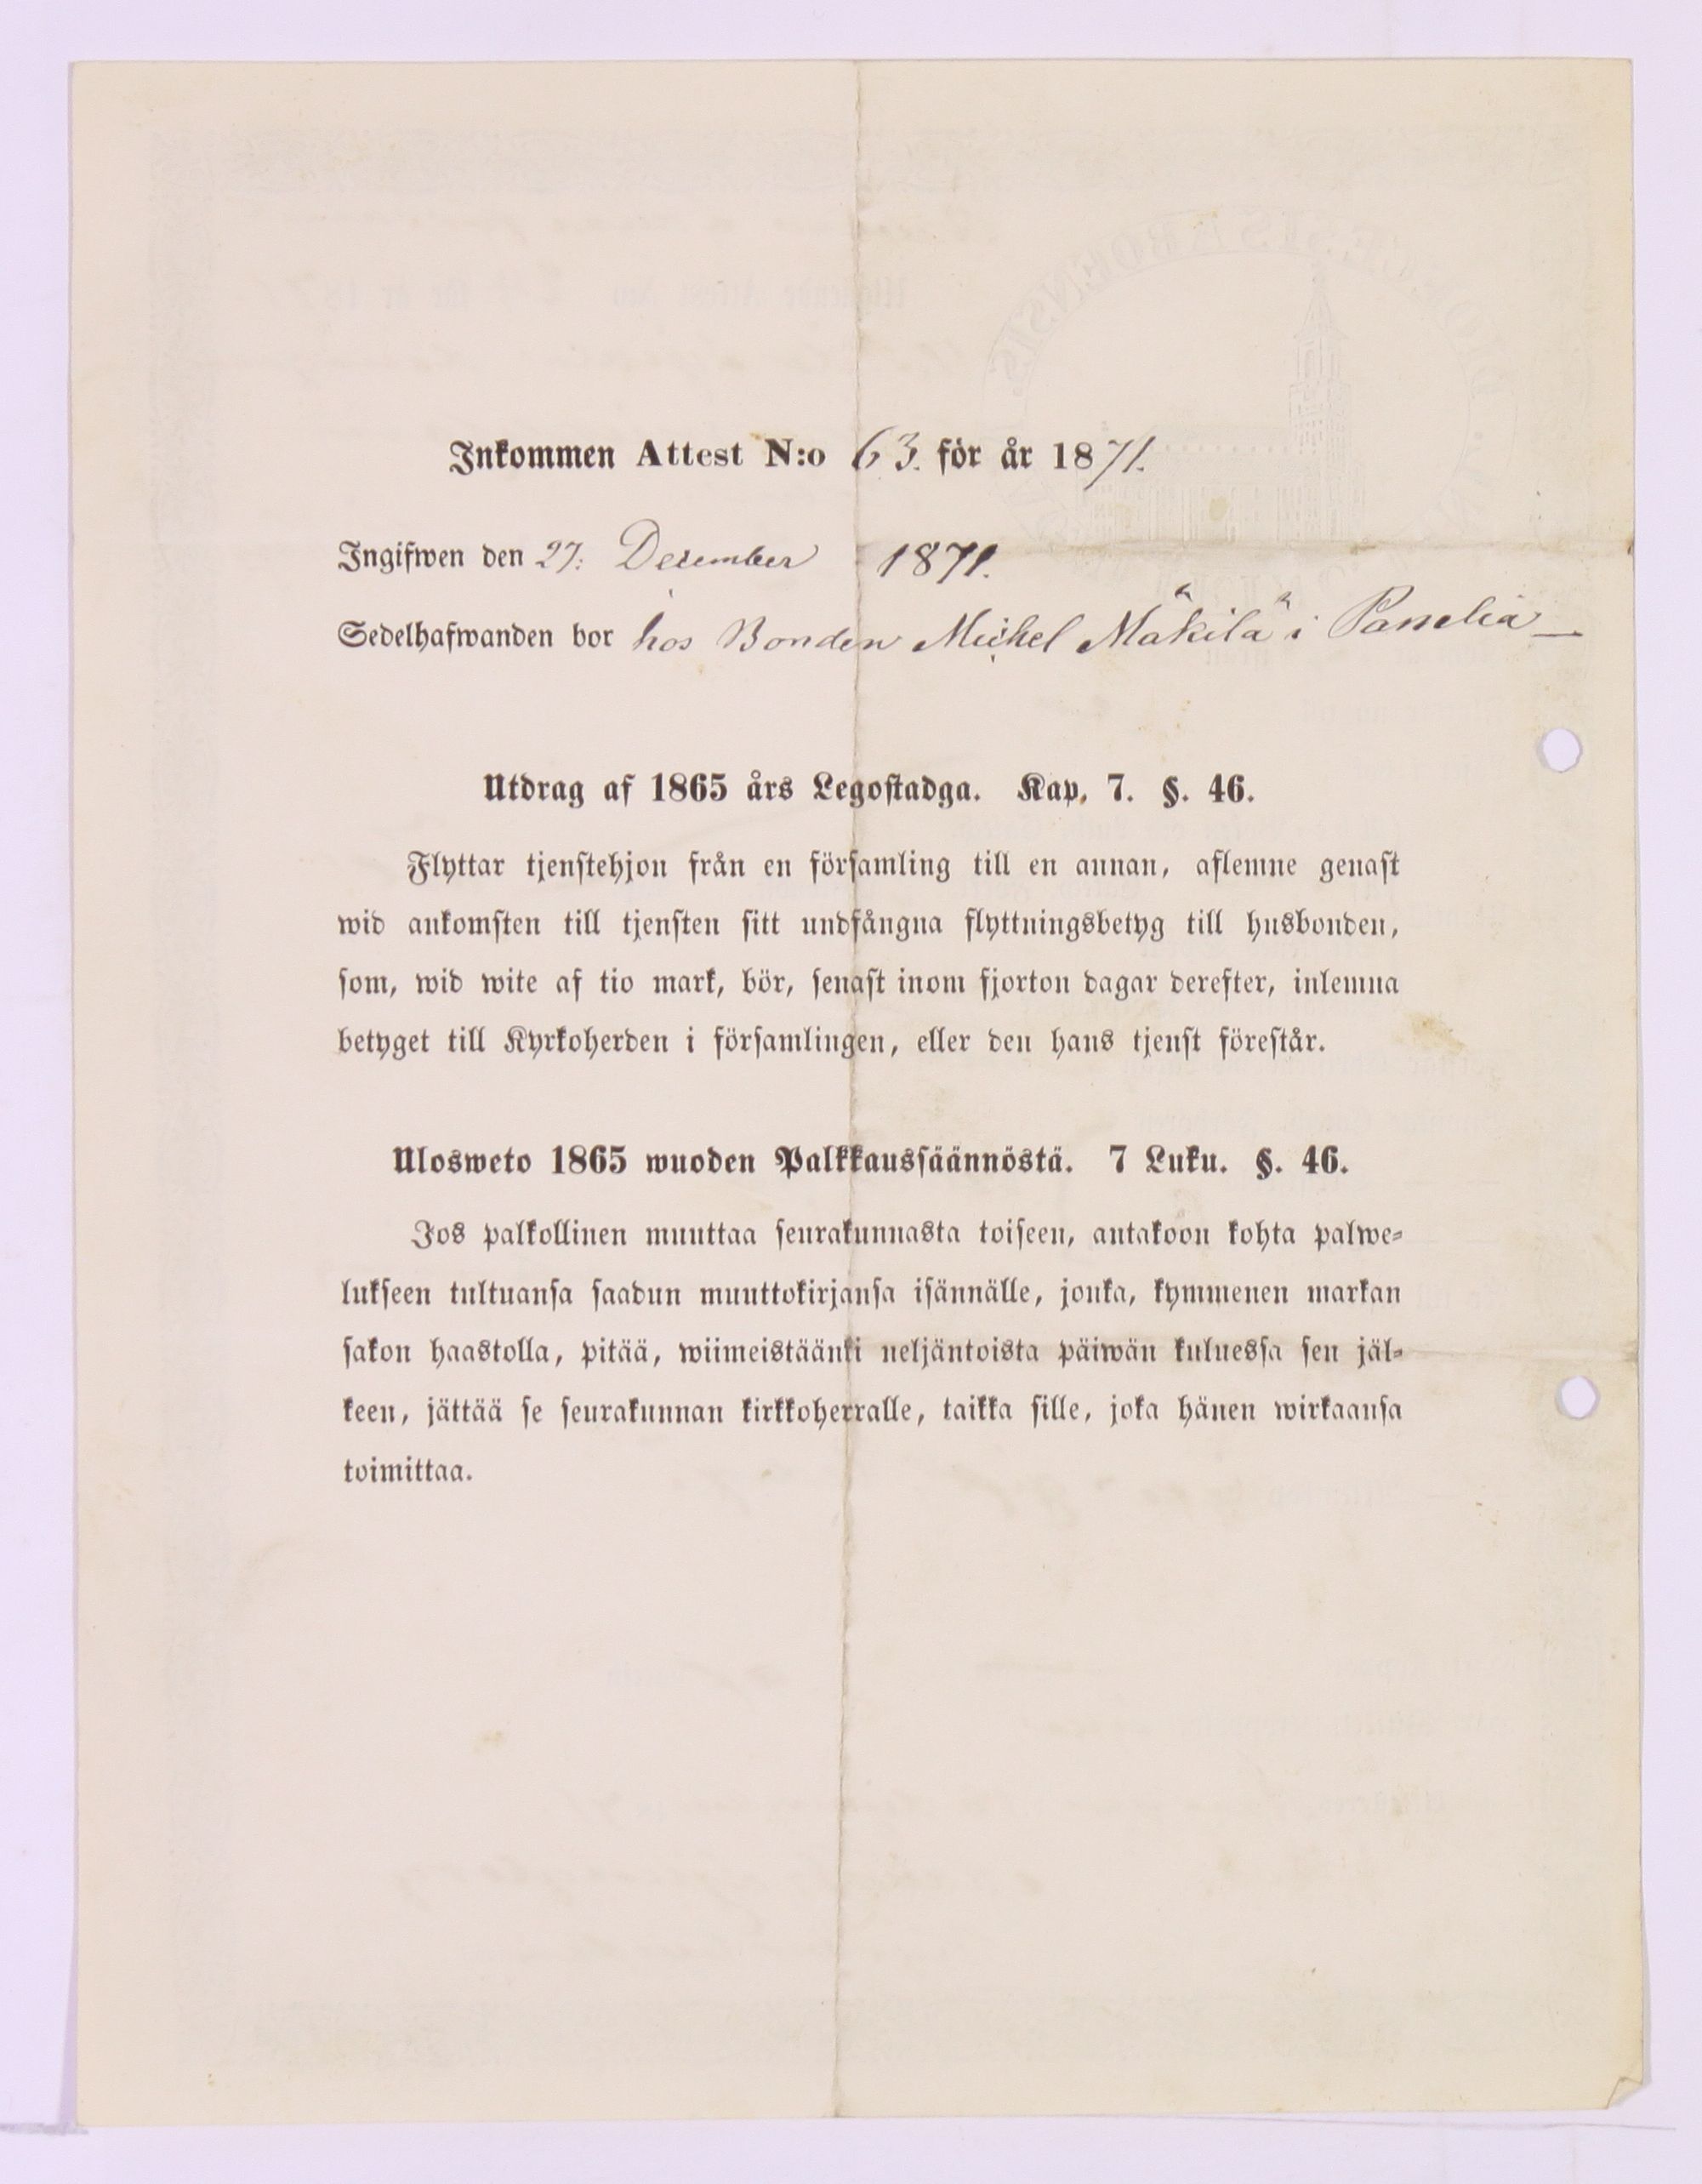 Inkommen Attest N:o 63. för år 1871.
Ingifwen den 27. December 1871.
Sedelhafwanden bor hos Bonden Michel Mäkilä i Panelia
Utdrag af 1865 års Legostadga. Kap. 7. §. 46.
Flyttar tjenstehjon från en församling till en annan, aflemne genast
wid ankomsten till tjensten sitt undfångna flyttningsbetyg till husbonden,
som, wid wite af tio mark, bör, senast inom fjorton dagar derefter, inlemna
betyget till Kyrkoherden i församlingen, eller den hans tjenst förestår.
Ulosweto 1865 wuoden Palkkaussäännöstä. 7 Luku. §. 46.
Jos palkollinen muuttaa seurakunnasta toiseen, antakoon kohta palwe-
lukseen tultuansa saadun muuttokirjansa isännälle, jonka, kymmenen markan
sakon haastolla, pitää, wiimeistäänki neljäntoista päiwän kuluessa sen jäl-
keen, jättää se seurakunnan kirkkoherralle, taikka sille, joka hänen wirkaansa
toimittaa.